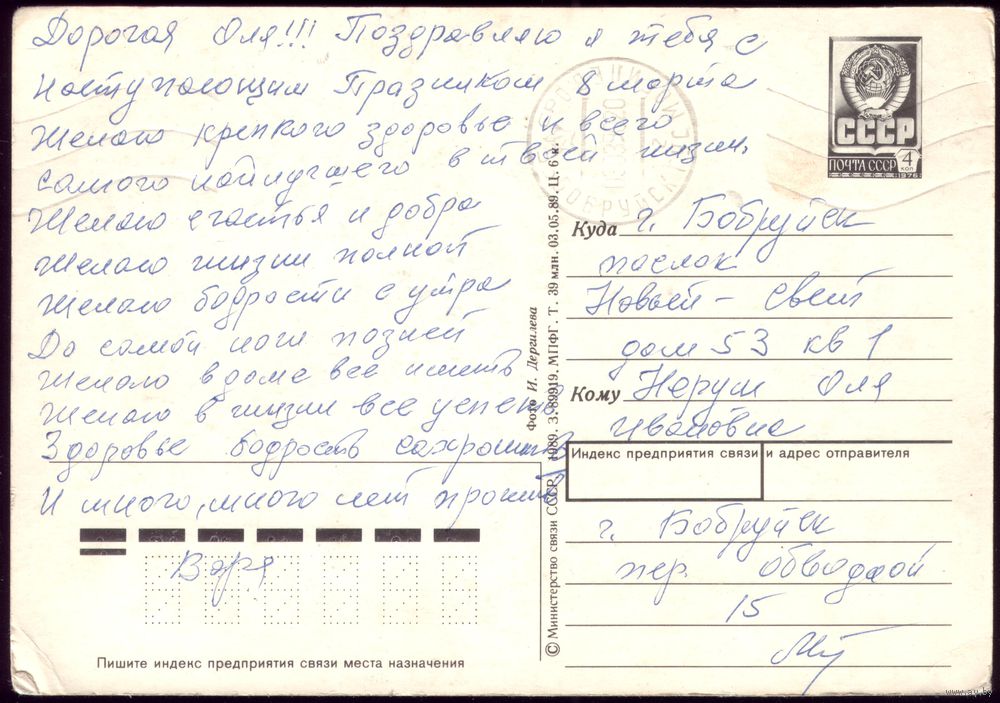 Дорогая Оля!!! Поздравляю я тебя с
наступающим Празником 8 марта
Желаю крепкого здоровье и всего
самого найлучшего в твоей жизни,
Желаю счастья и добра
Желаю жизни полной
Желаю бодрости с утра
До самой ночи поздней
Желаю в доме все иметь
Желаю в жизни все успеть
Здоровье бодрость сохронить
И много, много лет прожить
Варя
СССР
ПОЧТА СССР 4 коп
1976
БОБРУЙСК
Куда г. Бобруйск
послок
Новый - Свет
дом 53 кв 1
Кому Неруш Оля
Ивановна
Индекс предприятия связи и адрес отправителя
г. Бобруйск
пер. Обводной
15
Фото И. Дергилева
© Министерство связи СССР. 1989. З. 89919. МПФГ. Т. 39 млн. 03.05.89. Ц. 6 к.
Пишите индекс предприятия связи места назначения
www.ay.by